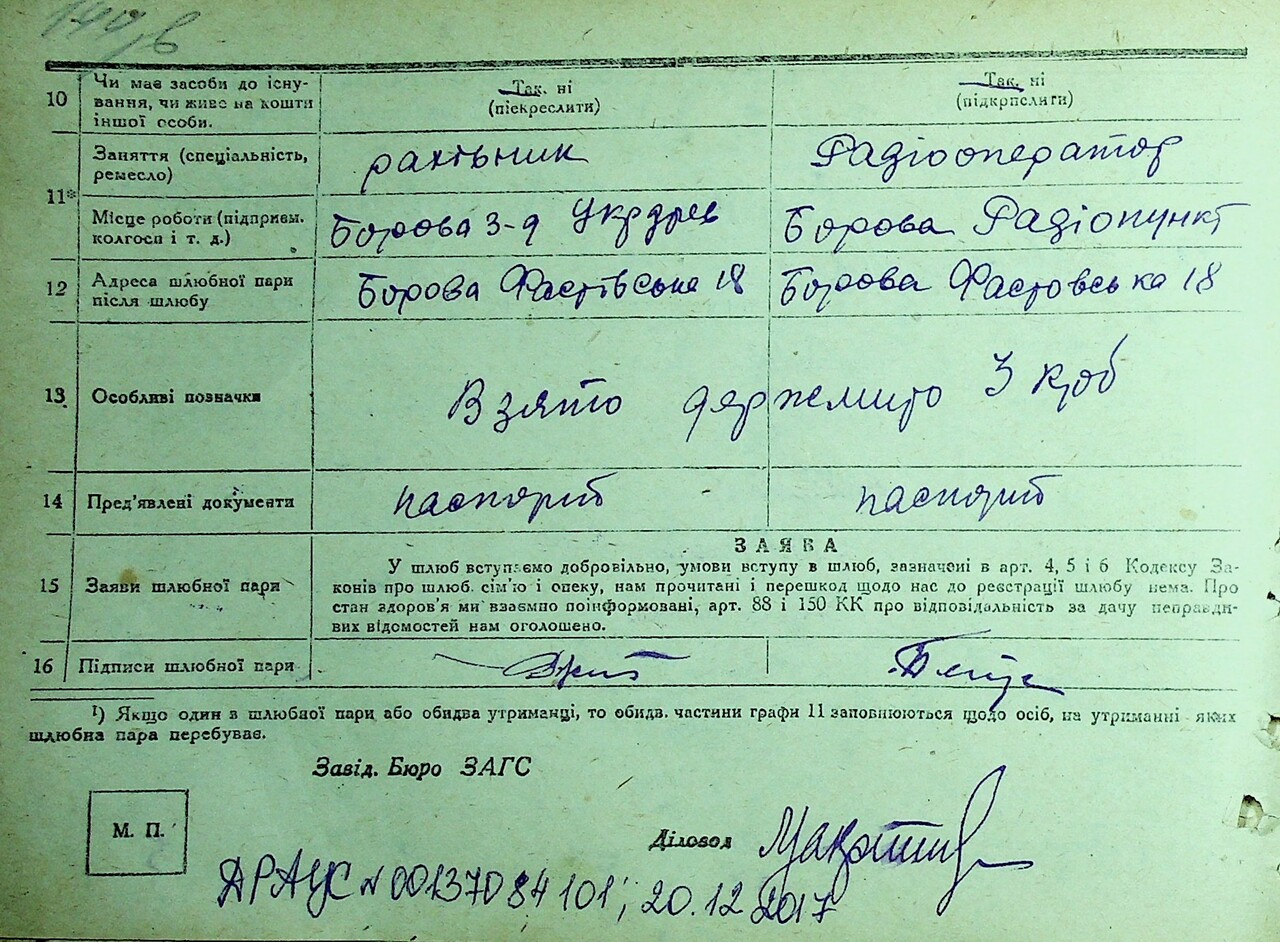 140 зв
10 Чи має засоби до існу-
вання, чи живе на кошти
іншої особи.
Так. ні
(піекреслити)
Так. ні
(підкрпслити)
11* Заняття (спеціальність,
ремесло)
рахівник
Радіооператор
Місце роботи (підприєм.
колгосп і т. д.)
Борова З-д Укрдрев
Борова Радіопункт
12 Адреса шлюбної пари
після шлюбу
Борова Фастівська 18
Борова Фастовська 18
13 Особливі позначки
Взято держмито 3 крб
14 Пред'явлені документи
паспорт
паспорт
15 Заяви шлюбної пари
ЗАЯВА
У шлюб вступаємо добровільно, умови вступу в шлюб, зазначені в арт. 4, 5 і 6 Кодексу За-
конів про шлюб. сім'ю і опеку, нам прочитані і перешкод щодо нас до реєстрації шлюбу нема. Про
стан здоров'я ми взаємно поінформовані, арт. 88 і 150 КК про відповідальність за дачу неправди-
вих відомостей нам оголошено.
16 Підписи шлюбної пари
¹) Якщо один з шлюбної пари або обидва утриманці, то обидв. частини графи 11 заповнюються щодо осіб, на утриманні яких
шлюбна пара перебуває.
Завід. Бюро ЗАГС
М. П.
Діловод
ДРАЦС № 00137084101; 20.12.2017